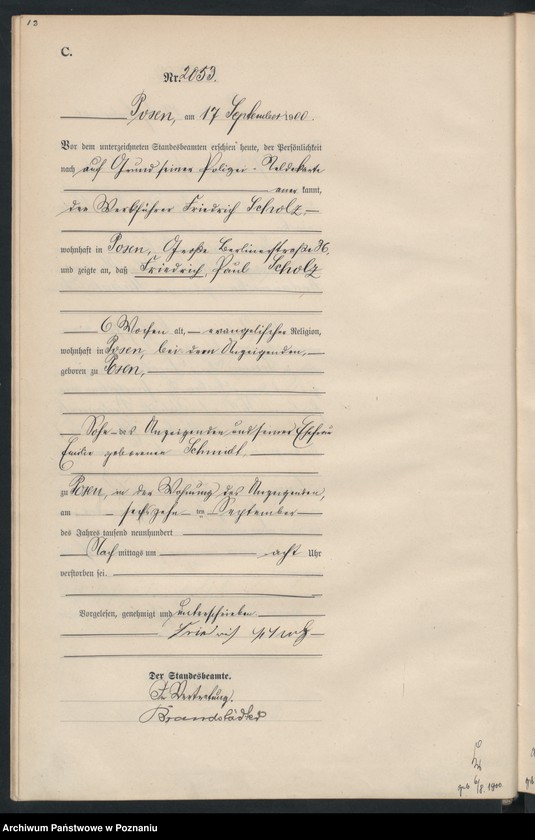 12
C.
Nr. 2053.
Posen, am 17 September 1900.
Vor dem unterzeichneten Standesbeamten erschien heute, der Persönlichkeit
nach auf Grund seiner Polizei-Meldekarte
aner kannt,
der Werkführer Friedrich Scholz,
wohnhaft in Posen, Große Berlinerstraße 36,
und zeigte an, daß Friedrich Paul Scholz
6 Wochen alt, evangelischer Religion,
wohnhaft in Posen, bei dem Anzeigenden,
geboren zu Posen,
Sohn des Anzeigenden und seiner Ehefrau
geborenen Schmidt,
zu Posen, in der Wohnung des Anzeigenden,
am sechszehnten September
des Jahres tausend neunhundert
Nach mittags um acht Uhr
verstorben sei.
Vorgelesen, genehmigt und unterschrieben
Friedrich Scholz
Der Standesbeamte.
In Vertretung.
Brandstädter
1900
Archiwum Państwowe w Poznaniu